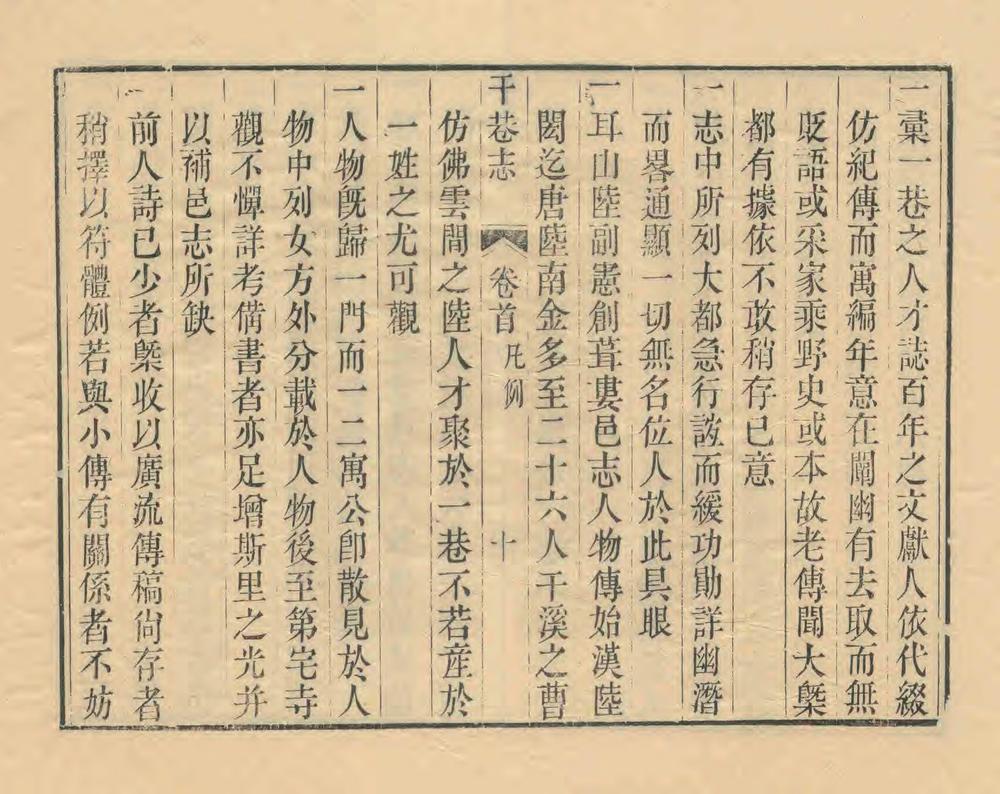 一彚一巷之人才誌百年之文獻人依代綴
仿紀傳而寓編年意在闡幽有去取而無
貶語或采家乘野史或本故老傳聞大槩
都有據依不敢稍存已意
一志中所列大都急行誼而緩功勛詳幽潛
而畧通顯一切無名位人於此具眼
一耳山陸副憲創葺婁邑志人物傳始漢陸
閎迄唐陸南金多至二十六人干溪之曹
干巷志 卷首 凡例 十
仿佛雲間之陸人才聚於一巷不若産於
一姓之尤可觀
一人物旣歸一門而一二寓公卽散見於人
物中列女方外分載於人物後至第宅寺
觀不憚詳考備書者亦足增斯里之光并
以補邑志所缺
一前人詩已少者槩收以廣流傳稿尙存者
稍擇以符體例若與小傳有關係者不妨